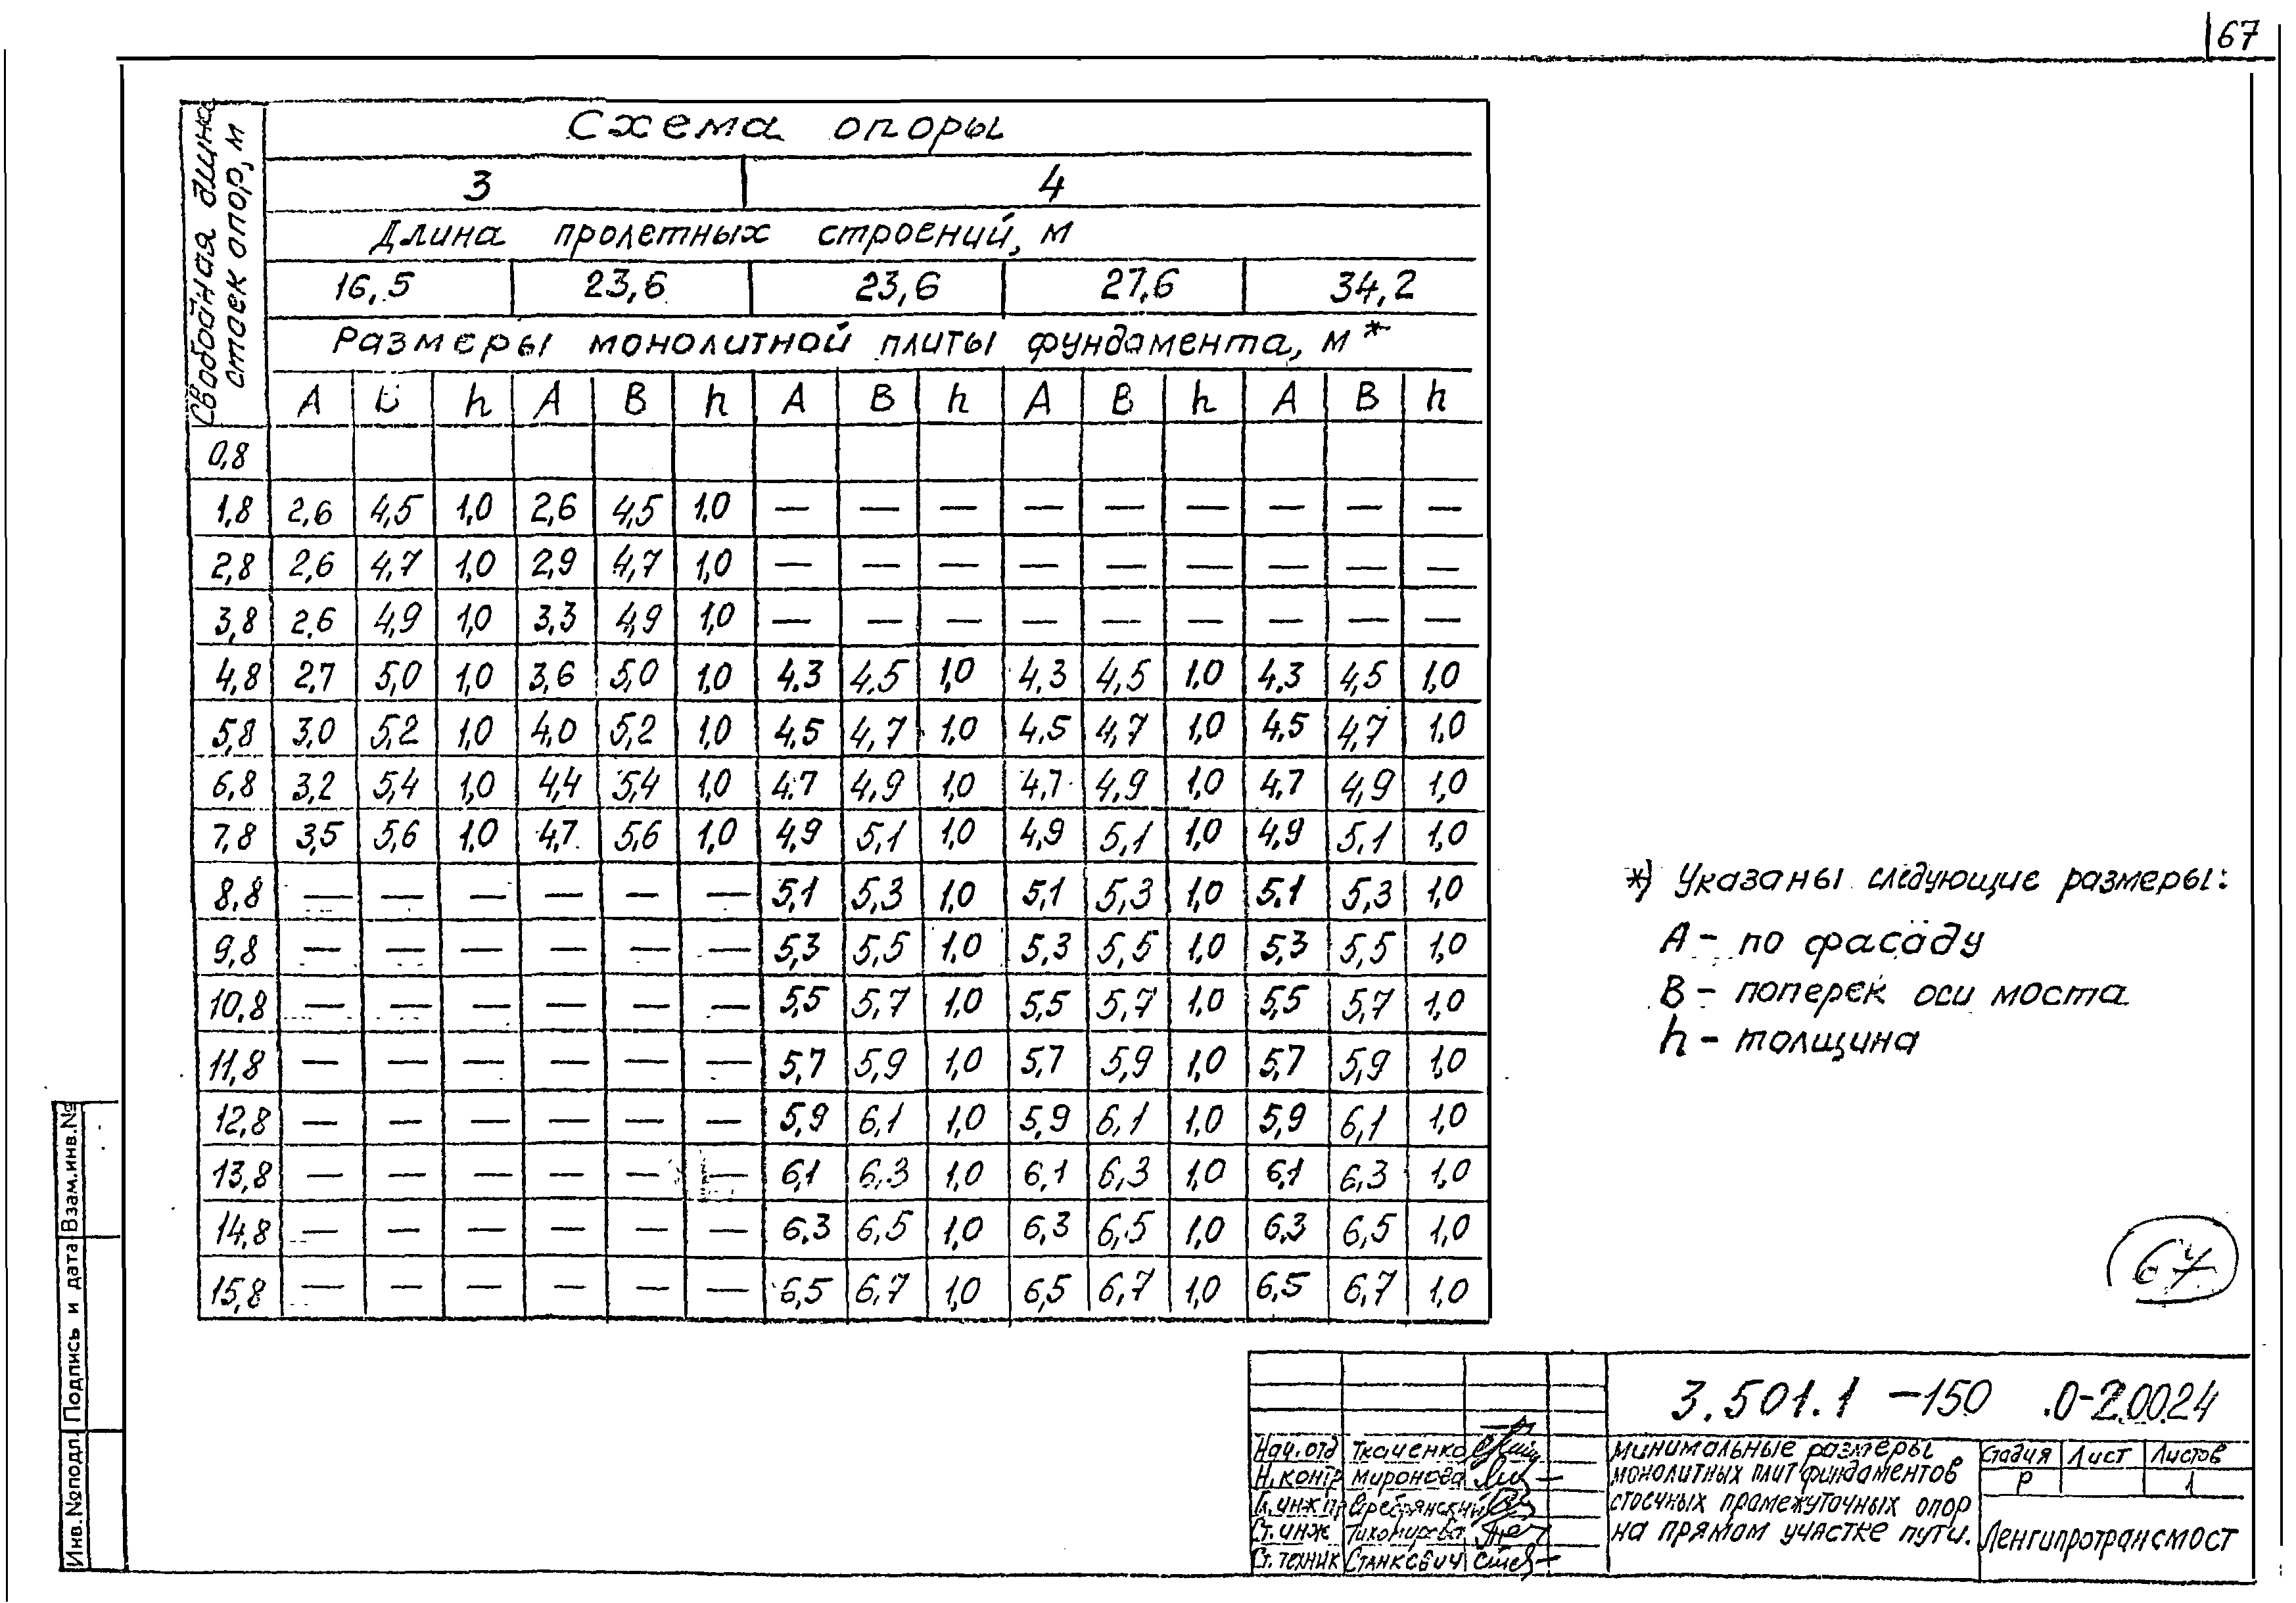 67
Свободная длина стоек опор, м
Схема опоры
3 4
Длина пролетных строений, м
16,5 23,6 23,6 27,6 34,2
Размеры монолитной плиты фундамента, м*
А В h А В h А В h А В h А В h
0,8
1,8 2,6 4,5 1,0 2,6 4,5 1,0 — — — — — — — — —
2,8 2,6 4,7 1,0 2,9 4,7 1,0 — — — — — — — — —
3,8 2,6 4,9 1,0 3,3 4,9 1,0 — — — — — — — — —
4,8 2,7 5,0 1,0 3,6 5,0 1,0 4,3 4,5 1,0 4,3 4,5 1,0 4,3 4,5 1,0
5,8 3,0 5,2 1,0 4,0 5,2 1,0 4,5 4,7 1,0 4,5 4,7 1,0 4,5 4,7 1,0
6,8 3,2 5,4 1,0 4,4 5,4 1,0 4,7 4,9 1,0 4,7 4,9 1,0 4,7 4,9 1,0
7,8 3,5 5,6 1,0 4,7 5,6 1,0 4,9 5,1 1,0 4,9 5,1 1,0 4,9 5,1 1,0
8,8 — — — — — — 5,1 5,3 1,0 5,1 5,3 1,0 5,1 5,3 1,0
9,8 — — — — — — 5,3 5,5 1,0 5,3 5,5 1,0 5,3 5,5 1,0
10,8 — — — — — — 5,5 5,7 1,0 5,5 5,7 1,0 5,5 5,7 1,0
11,8 — — — — — — 5,7 5,9 1,0 5,7 5,9 1,0 5,7 5,9 1,0
12,8 — — — — — — 5,9 6,1 1,0 5,9 6,1 1,0 5,9 6,1 1,0
13,8 — — — — — — 6,1 6,3 1,0 6,1 6,3 1,0 6,1 6,3 1,0
14,8 — — — — — — 6,3 6,5 1,0 6,3 6,5 1,0 6,3 6,5 1,0
15,8 — — — — — — 6,5 6,7 1,0 6,5 6,7 1,0 6,5 6,7 1,0
*) Указаны следующие размеры:
А – по фасаду
В – поперек оси моста
h – толщина
67
Взам.инв.№
Подпись и дата
Инв.№подл.
3.501.1 –150 .0-2.0024
Нач.отд Ткаченко
Н.контр Миронова
Гл.инж.пр
Ст.инж Тихомирова
Ст.техник Станкевич
Минимальные размеры
монолитных плит фундаментов
стоечных промежуточных опор
на прямом участке пути.
Стадия Лист Листов
Р 1
Ленгипротрансмост